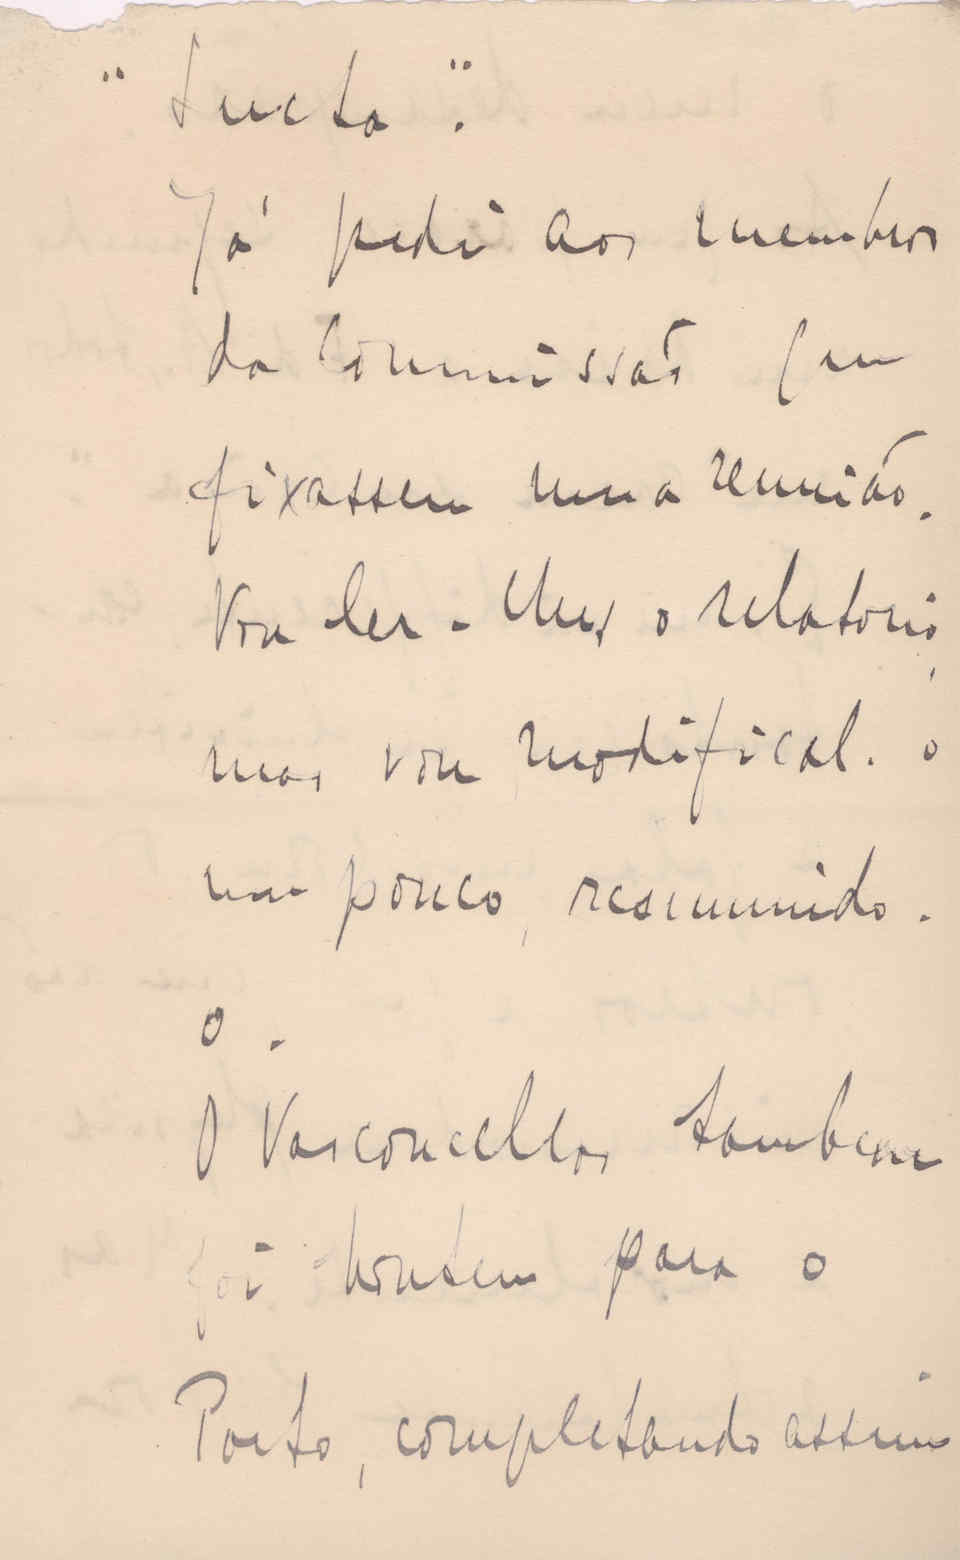 "Lucta".
Já pedi aos membros
da Commissão que
fixassem uma reunião.
Vou ler-lhes o relatorio,
mas vou modifical-o
um pouco, resumindo-
o.
O Vasconcellos tambem
foi hontem para o
Porto, completando assim